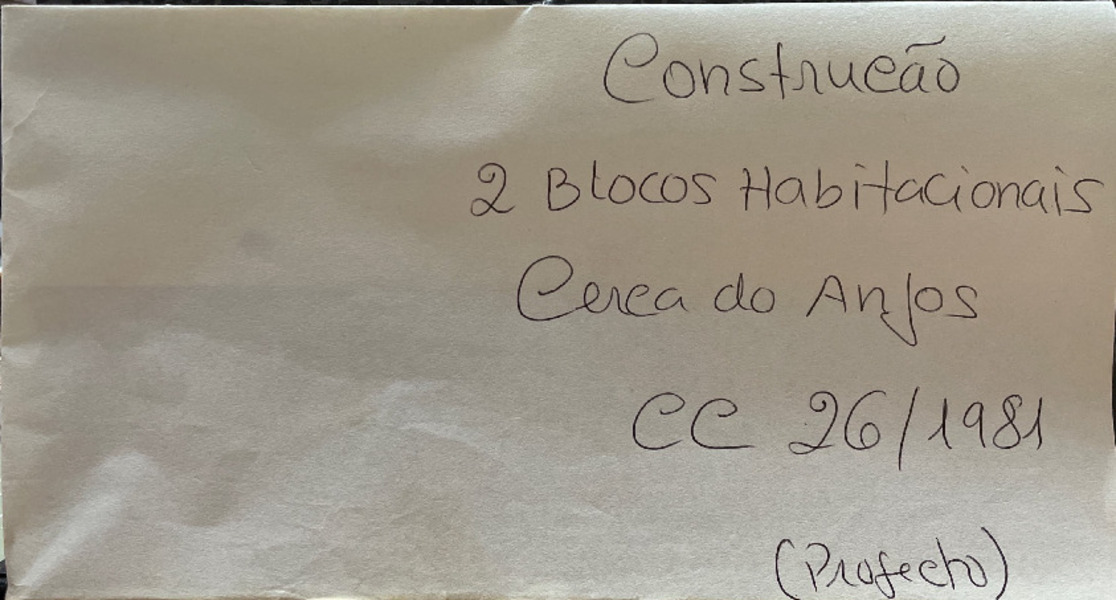 Construcão
2 Blocos Habitacionais
Cerca do Anjos
CC 26/1981
(Projecto)